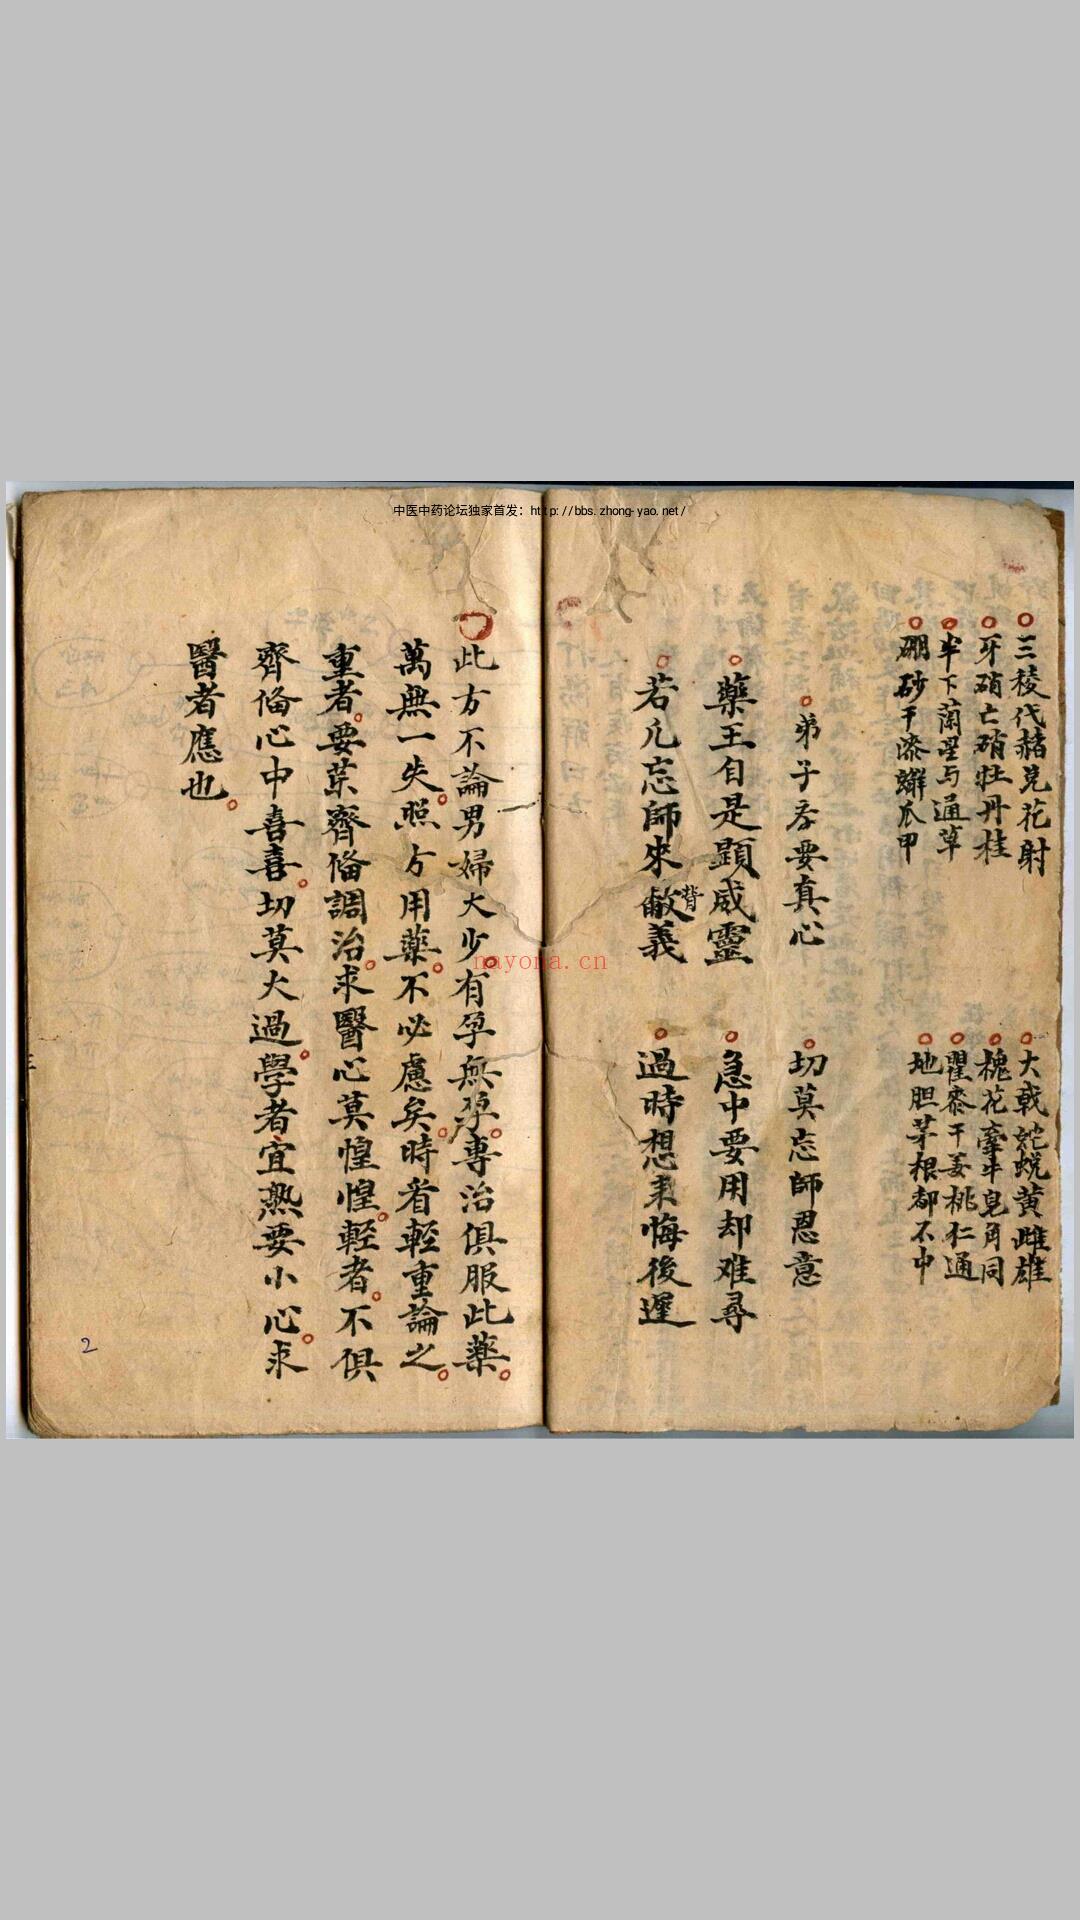 中医中药论坛独家首发：http://bbs.zhong-yao.net/
三稜代赭芫花射
大戟蛇蜕黄雌雄
牙硝亡硝牡丹桂
槐花牽牛皂角同
半下蘭星与通草
瞿麥干姜桃仁通
硼砂干漆蠏爪甲
地胆茅根都不中
弟子要真心
切莫忘師恩意
藥王自是顕威靈
急中要用却难尋
若凡忘師来背義
過時想来悔後遲
此方不論男婦大少有孕無孕專治俱服此藥
萬無一失照方用藥不必慮矣時看輕重論之
重者要藥齊俻調治求醫心莫惶惶輕者不俱
齊俻心中喜喜切莫大過學者宜熟要小心求
醫者應也
2
nayona.cn